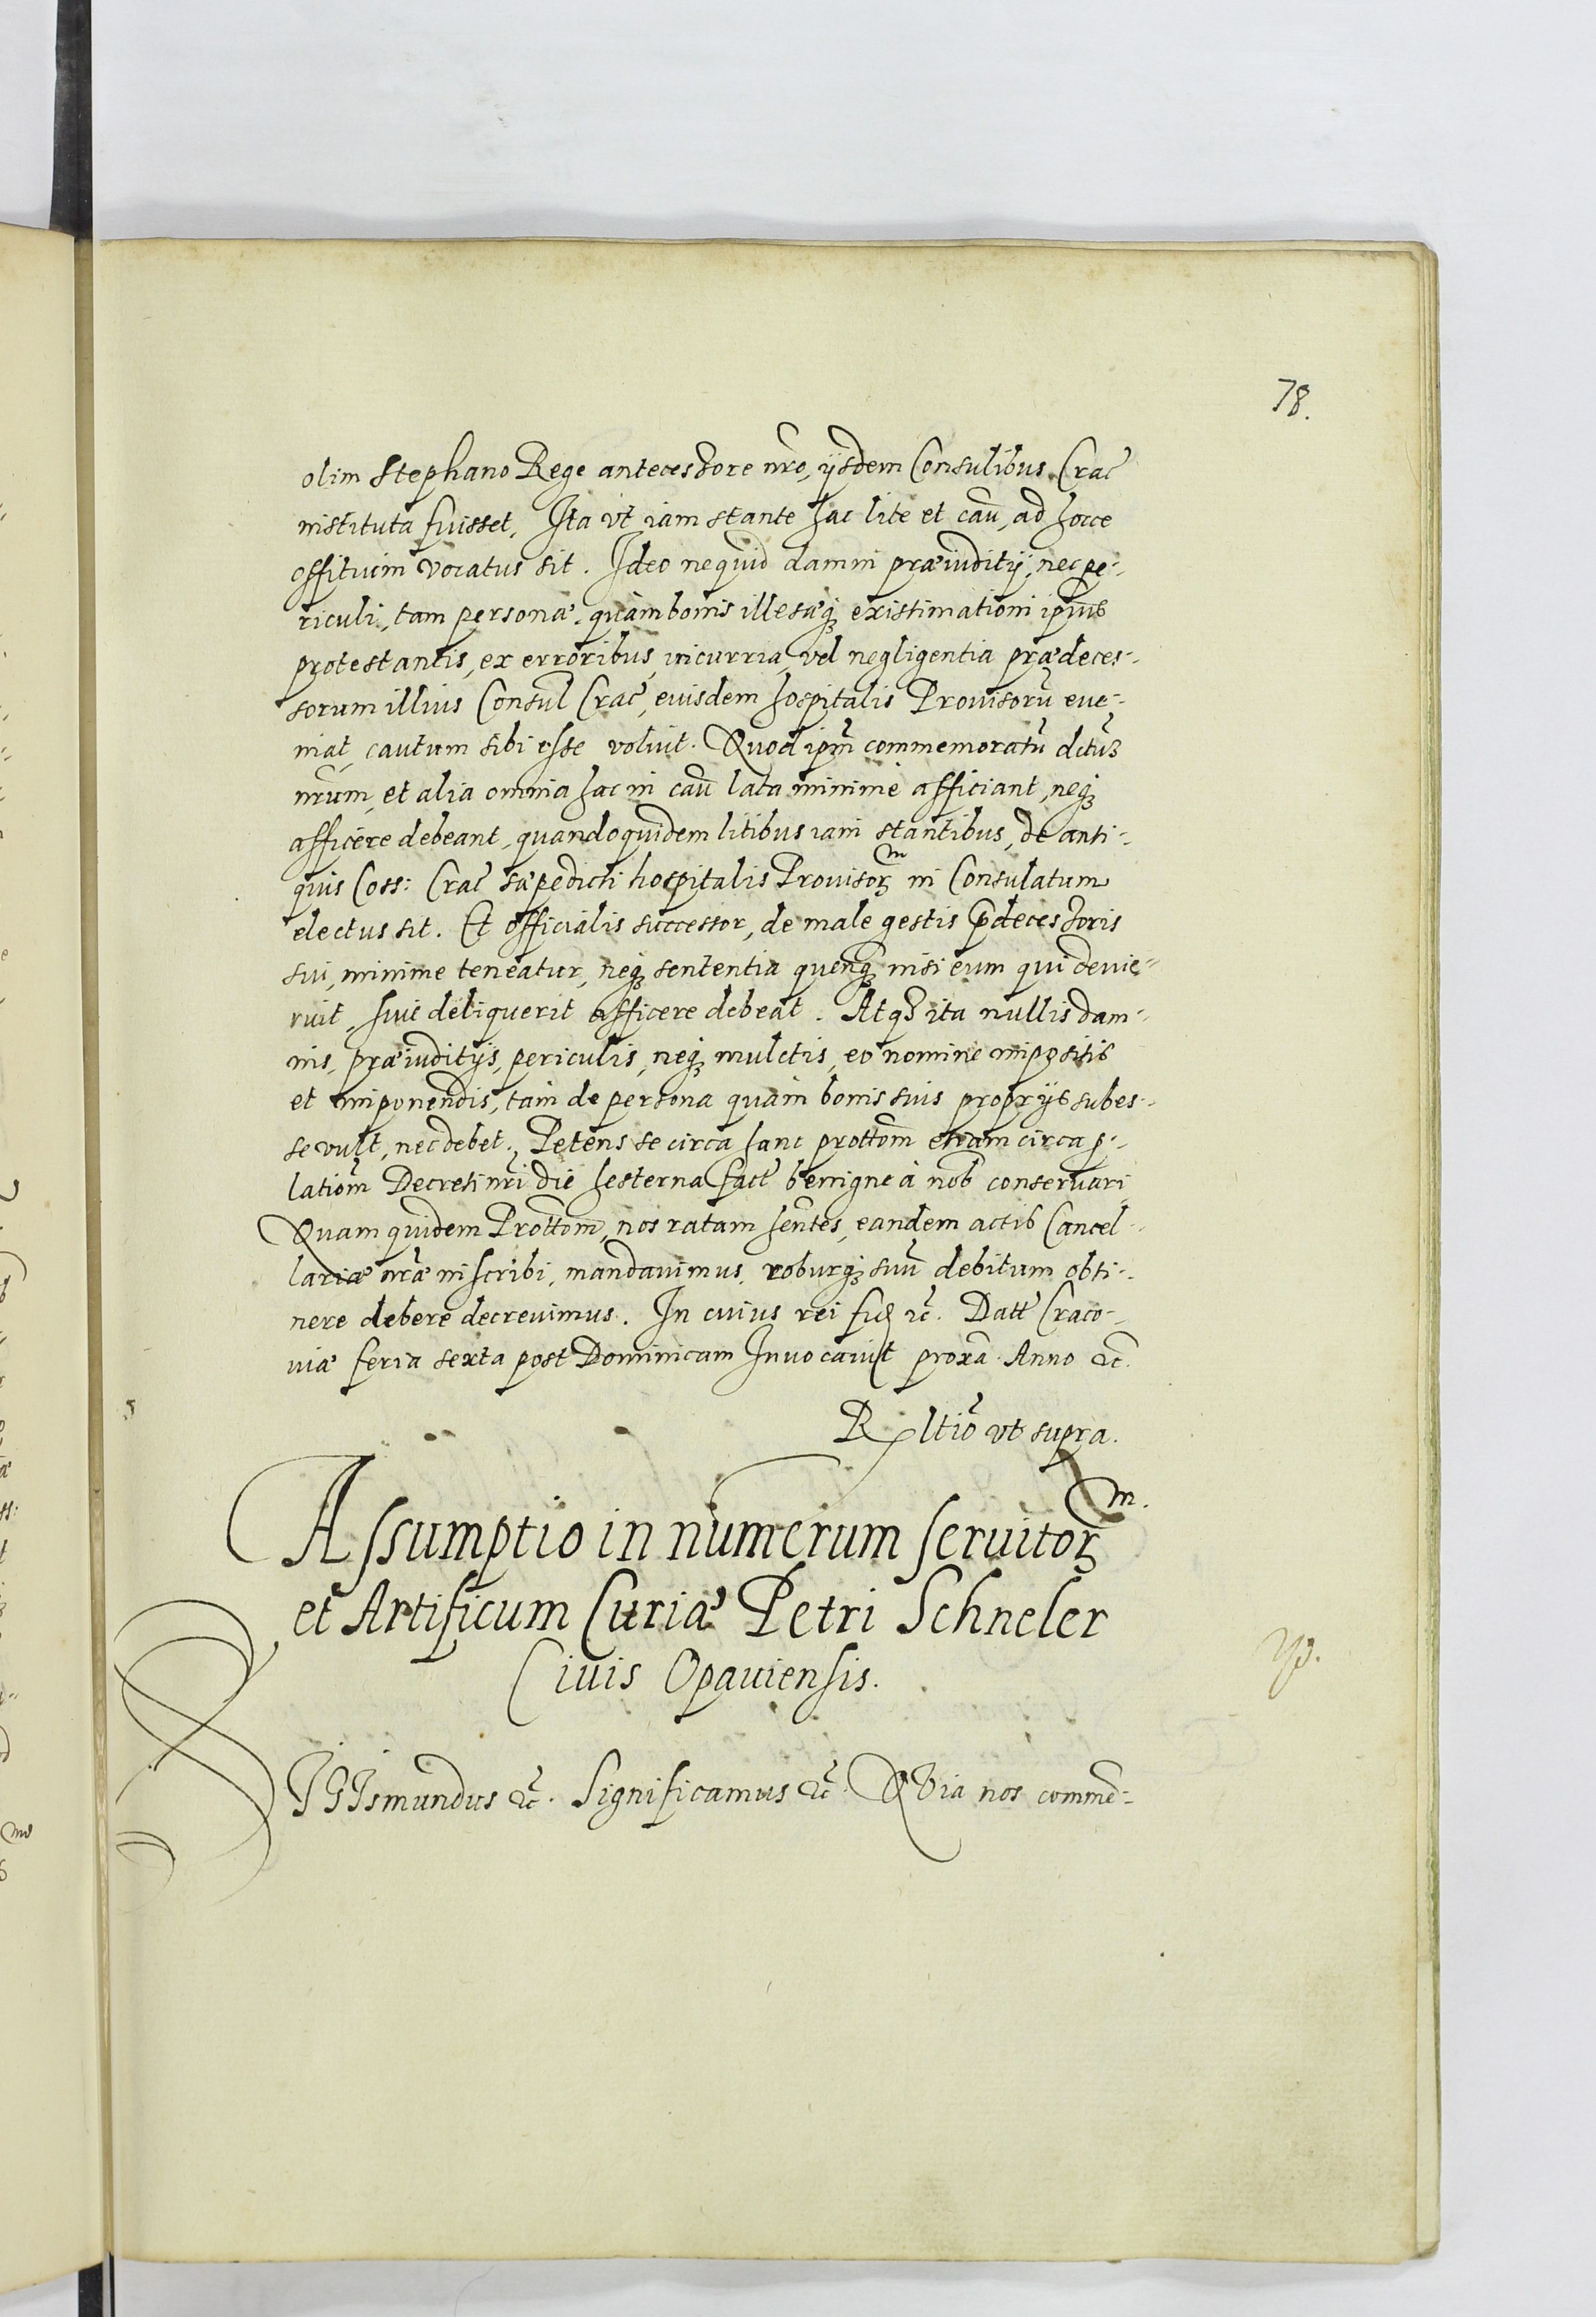 78.
olim Stephano Rege antecessore nr̃o, ijsdem Consulibus Crac̃
instituta fuisset, Ita vt iam stante hac lite et cãu, ad hocce
offitium vocatus sit. Ideo nequid damni præiuditij, nec pe-
riculi, tam personæ, quàm bonis illesæq; existimationi ipsius
protestantis, ex erroribus, incurria, vel negligentia prædeces-
sorum illius Consul̃ Crac̃, eiusdem hospitalis Prouisorũ eue-
niat, cautum sibi esse voluit. Quod ipm̃ commemoratũ dctũ
nr̃um, et alia omnia hac in cãu lata minimè afficiant, neq;
afficere debeant, quandoquidem litibus iam stantibus, de anti-
quis Coss: Crac̃ sæpedicti hospitalis Prouisorm in Consulatum
electus sit. Et officialis successor, de male gestis p̃decessoris
sui, minime teneatur, neq; sententia quenq; nisi eum qui deuie-
ruit, siue deliquerit afficere debeat. Atq; ita nullis dam-
nis, præiuditijs, periculis, neq; mulctis, eo nomine impositis
et imponendis, tam de persona quàm bonis suis proprijs subes-
se vult, nec debet. Petens se circa hanc prottom̃ etiam circa p-
latiom̃ Decreti nr̃i die hesterna fact̃ benigne à nob̃ conseruari
Quam quidem Prottom̃, nos ratam hen̄tes, eandem actis Cancel-
lariæ nr̃æ inscribi, mandauimus, roburq; suũ debitum obti-
nere debere decreuimus. In cuius rei fid ꝛc̃. Datt̃ Craco-
uiæ feria sexta post Dominicam Inuocauit prox̃a Anno ꝛc̃.
R ltiõ vt supra.
Assumptio in numerum seruitorm.
et Artificum Curiæ Petri Schneler
Ciuis Opauiensis.
SIGIsmundus ꝛc̃. Significamus ꝛc̃. QVia nos comme-